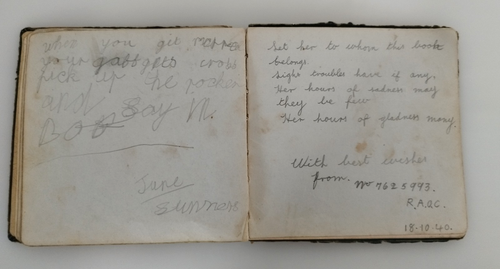 when you get married
your gets cross
pick up the rocker
and say
June
Let her to whom this book
belongs
Light troubles have if any,
Her hours of sadness may
they be few
Her hours of gladness many.
With best wishes
from. No 7625993.
R.A.O.C.
18.10.40.